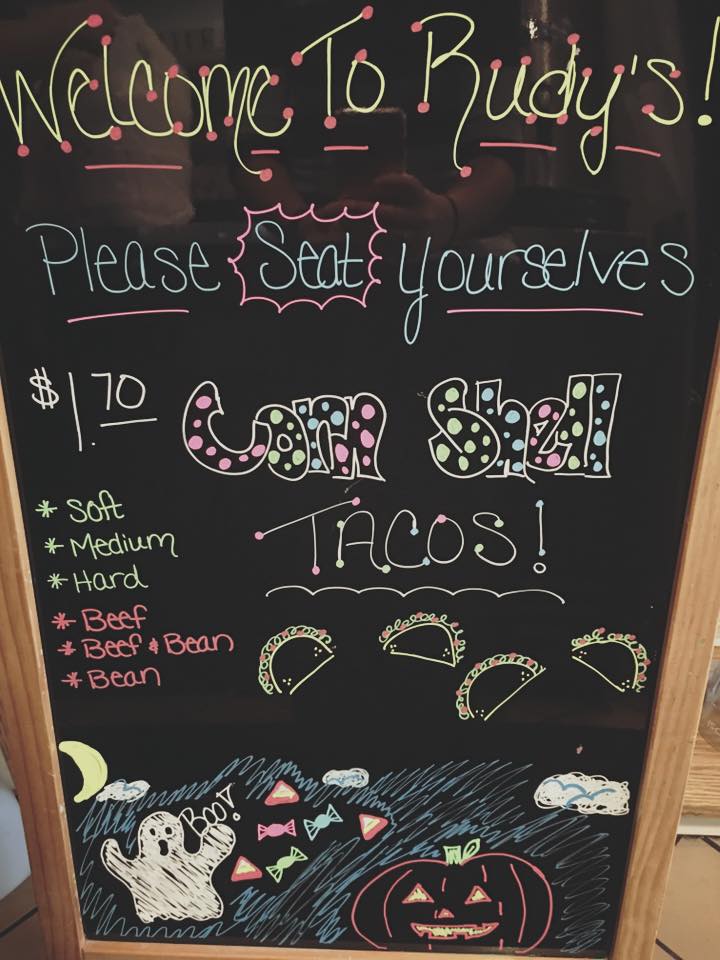 Welcome To Rudy's!
Please Seat yourselves
$1.70 Corn Shell
TACOS!
* Soft
* Medium
* Hard
* Beef
* Beef & Bean
* Bean
Boo!